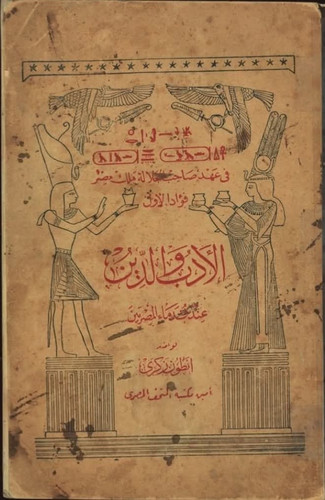 فى عهد صاحب الجلالة ملك مصر
فؤاد الأول
الأدب والدين
عند قدماء المصريين
مؤلفه
أنطون زكرى
أمين مكتبة المتحف المصرى